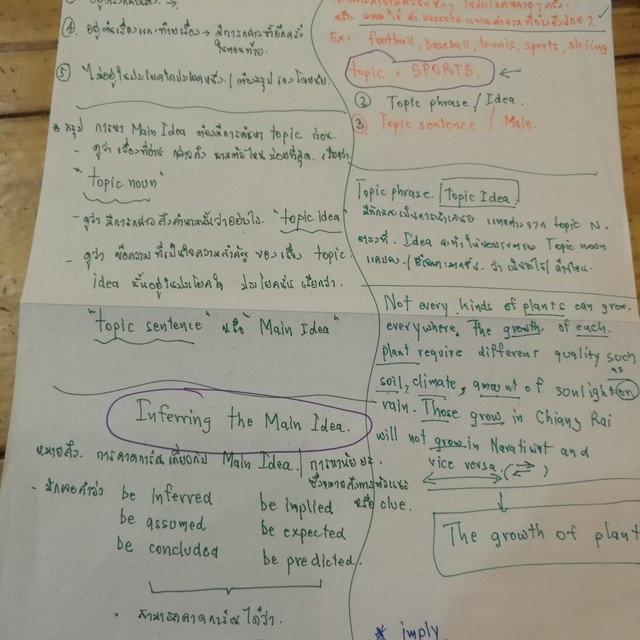 ④ อยู่ต้นเรื่องและท้ายเรื่อง → มีการกล่าวที่อีกครั้ง
ในตอนท้าย.
⑤ ไม่อยู่ในประโยคใดประโยคหนึ่ง / ต้องสรุปเองโดยนัย.
* สรุป การหา Main Idea ต้องมีการค้นหา topic ก่อน.
- ดูว่า เรื่องที่อ่าน กล่าวถึง นามตัวไหน บ่อยที่สุด. เรียกว่า
"topic noun"
- ดูว่า มีการกล่าวถึงคำนามนั้นว่าอย่างไร. "topic idea"
- ดูว่า ข้อความ ที่เป็นใจความสำคัญ ของเรื่อง topic.
idea นั้นอยู่ในประโยคใด ประโยคนั้น เรียกว่า.
"topic sentence" หรือ "Main Idea"
Inferring the Main Idea.
หมายถึง. การคาดการณ์เกี่ยวกับ Main Idea /
- มักเจอคำว่า be inferred be implied หรือ clue.
be assumed be expected
be concluded be predicted.
• สามารถคาดการณ์ได้ว่า.
Ex: football, baseball, tennis, sports, skiing
topic : SPORTS. ←
② Topic phrase / Idea.
③ Topic sentence / Main.
Topic phrase. topic Idea.
แตกต่างจาก topic N.
ตรงที่. Idea จะทำให้ Topic noun
แคบลง /
Not every kinds of plants can grow.
everywhere. The growth of each.
plant require different quality such
as
soil, climate, amount of sunlight on
rain. Those grow in Chiang Rai
will not grow in Naratiwat and
vice versa. (⇄)
The growth of plant
* imply